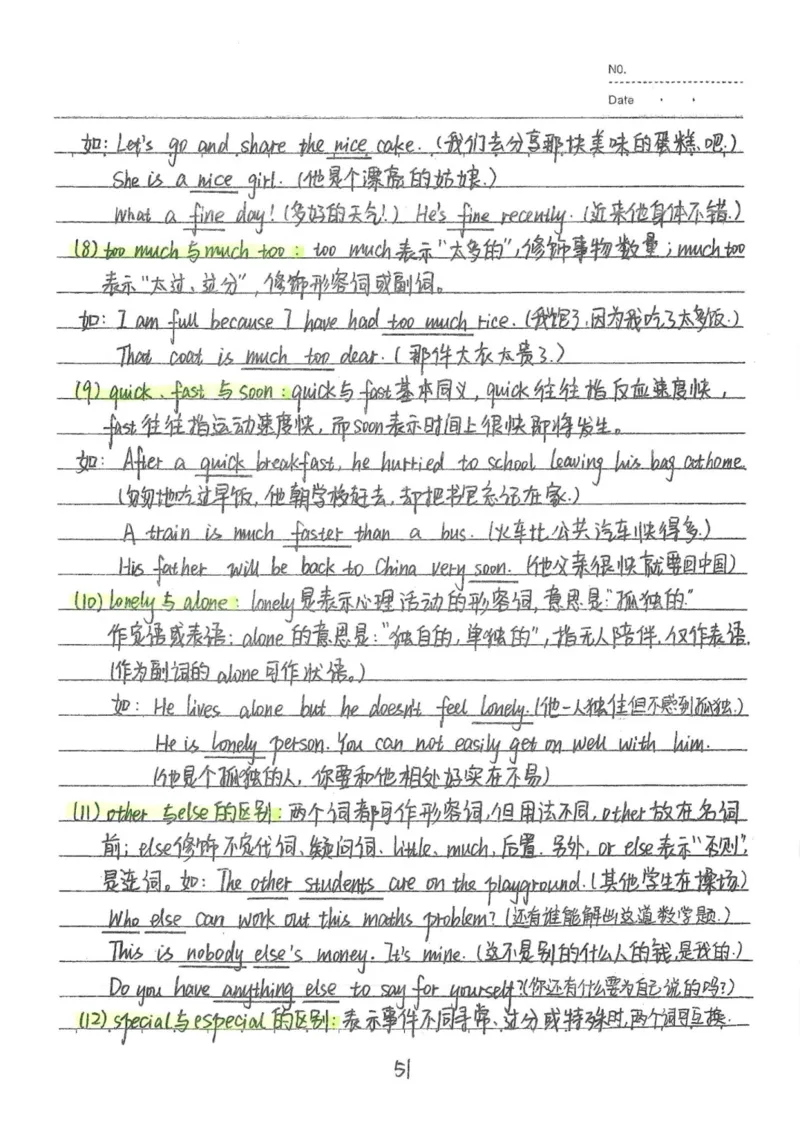 NO.
Date
如: Let's go and share the nice cake. (我们去分享那块美味的蛋糕吧.)
She is a nice girl. (他是个漂亮的姑娘.)
What a fine day! (多好的天气!) He's fine recently. (近来他身体不错.)
(8) too much与much too: too much表示"太多的",修饰事物数量;much too
表示"太过、过分",修饰形容词或副词。
如: I am full because I have had too much rice. (我饱了,因为我吃了太多饭.)
That coat is much too dear. (那件大衣太贵了.)
(9) quick、fast 与 soon: quick与fast基本同义, quick往往指反应速度快,
fast往往指运动速度快, 而soon表示时间上很快即将发生。
如: After a quick breakfast, he hurried to school leaving his bag at home.
(匆匆地吃过早饭, 他朝学校赶去, 却把书包忘记在家.)
A train is much faster than a bus. (火车比公共汽车快得多.)
His father will be back to China very soon. (他父亲很快就要回中国)
(10) lonely与alone: lonely是表示心理活动的形容词, 意思是:"孤独的"
作定语或表语; alone的意思是:"独自的,单独的", 指无人陪伴, 仅作表语.
(作为副词的alone可作状语。)
如: He lives alone but he doesn't feel lonely. (他一人独住但不感到孤独.)
He is lonely person. You can not easily get on well with him.
(他是个孤独的人, 你要和他相处好实在不易)
(11) other 与else的区别: 两个词都可作形容词, 但用法不同, other放在名词
前; else修饰不定代词、疑问词、little、much, 后置. 另外, or else表示"否则",
是连词。如: The other students are on the playground. (其他学生在操场)
Who else can work out this maths problem? (还有谁能解出这道数学题.)
This is nobody else's money. It's mine. (这不是别的什么人的钱,是我的.)
Do you have anything else to say for yourself? (你还有什么要为自己说的吗?)
(12) special与especial的区别: 表示事件不同寻常、过分或特殊时, 两个词可互换.
51